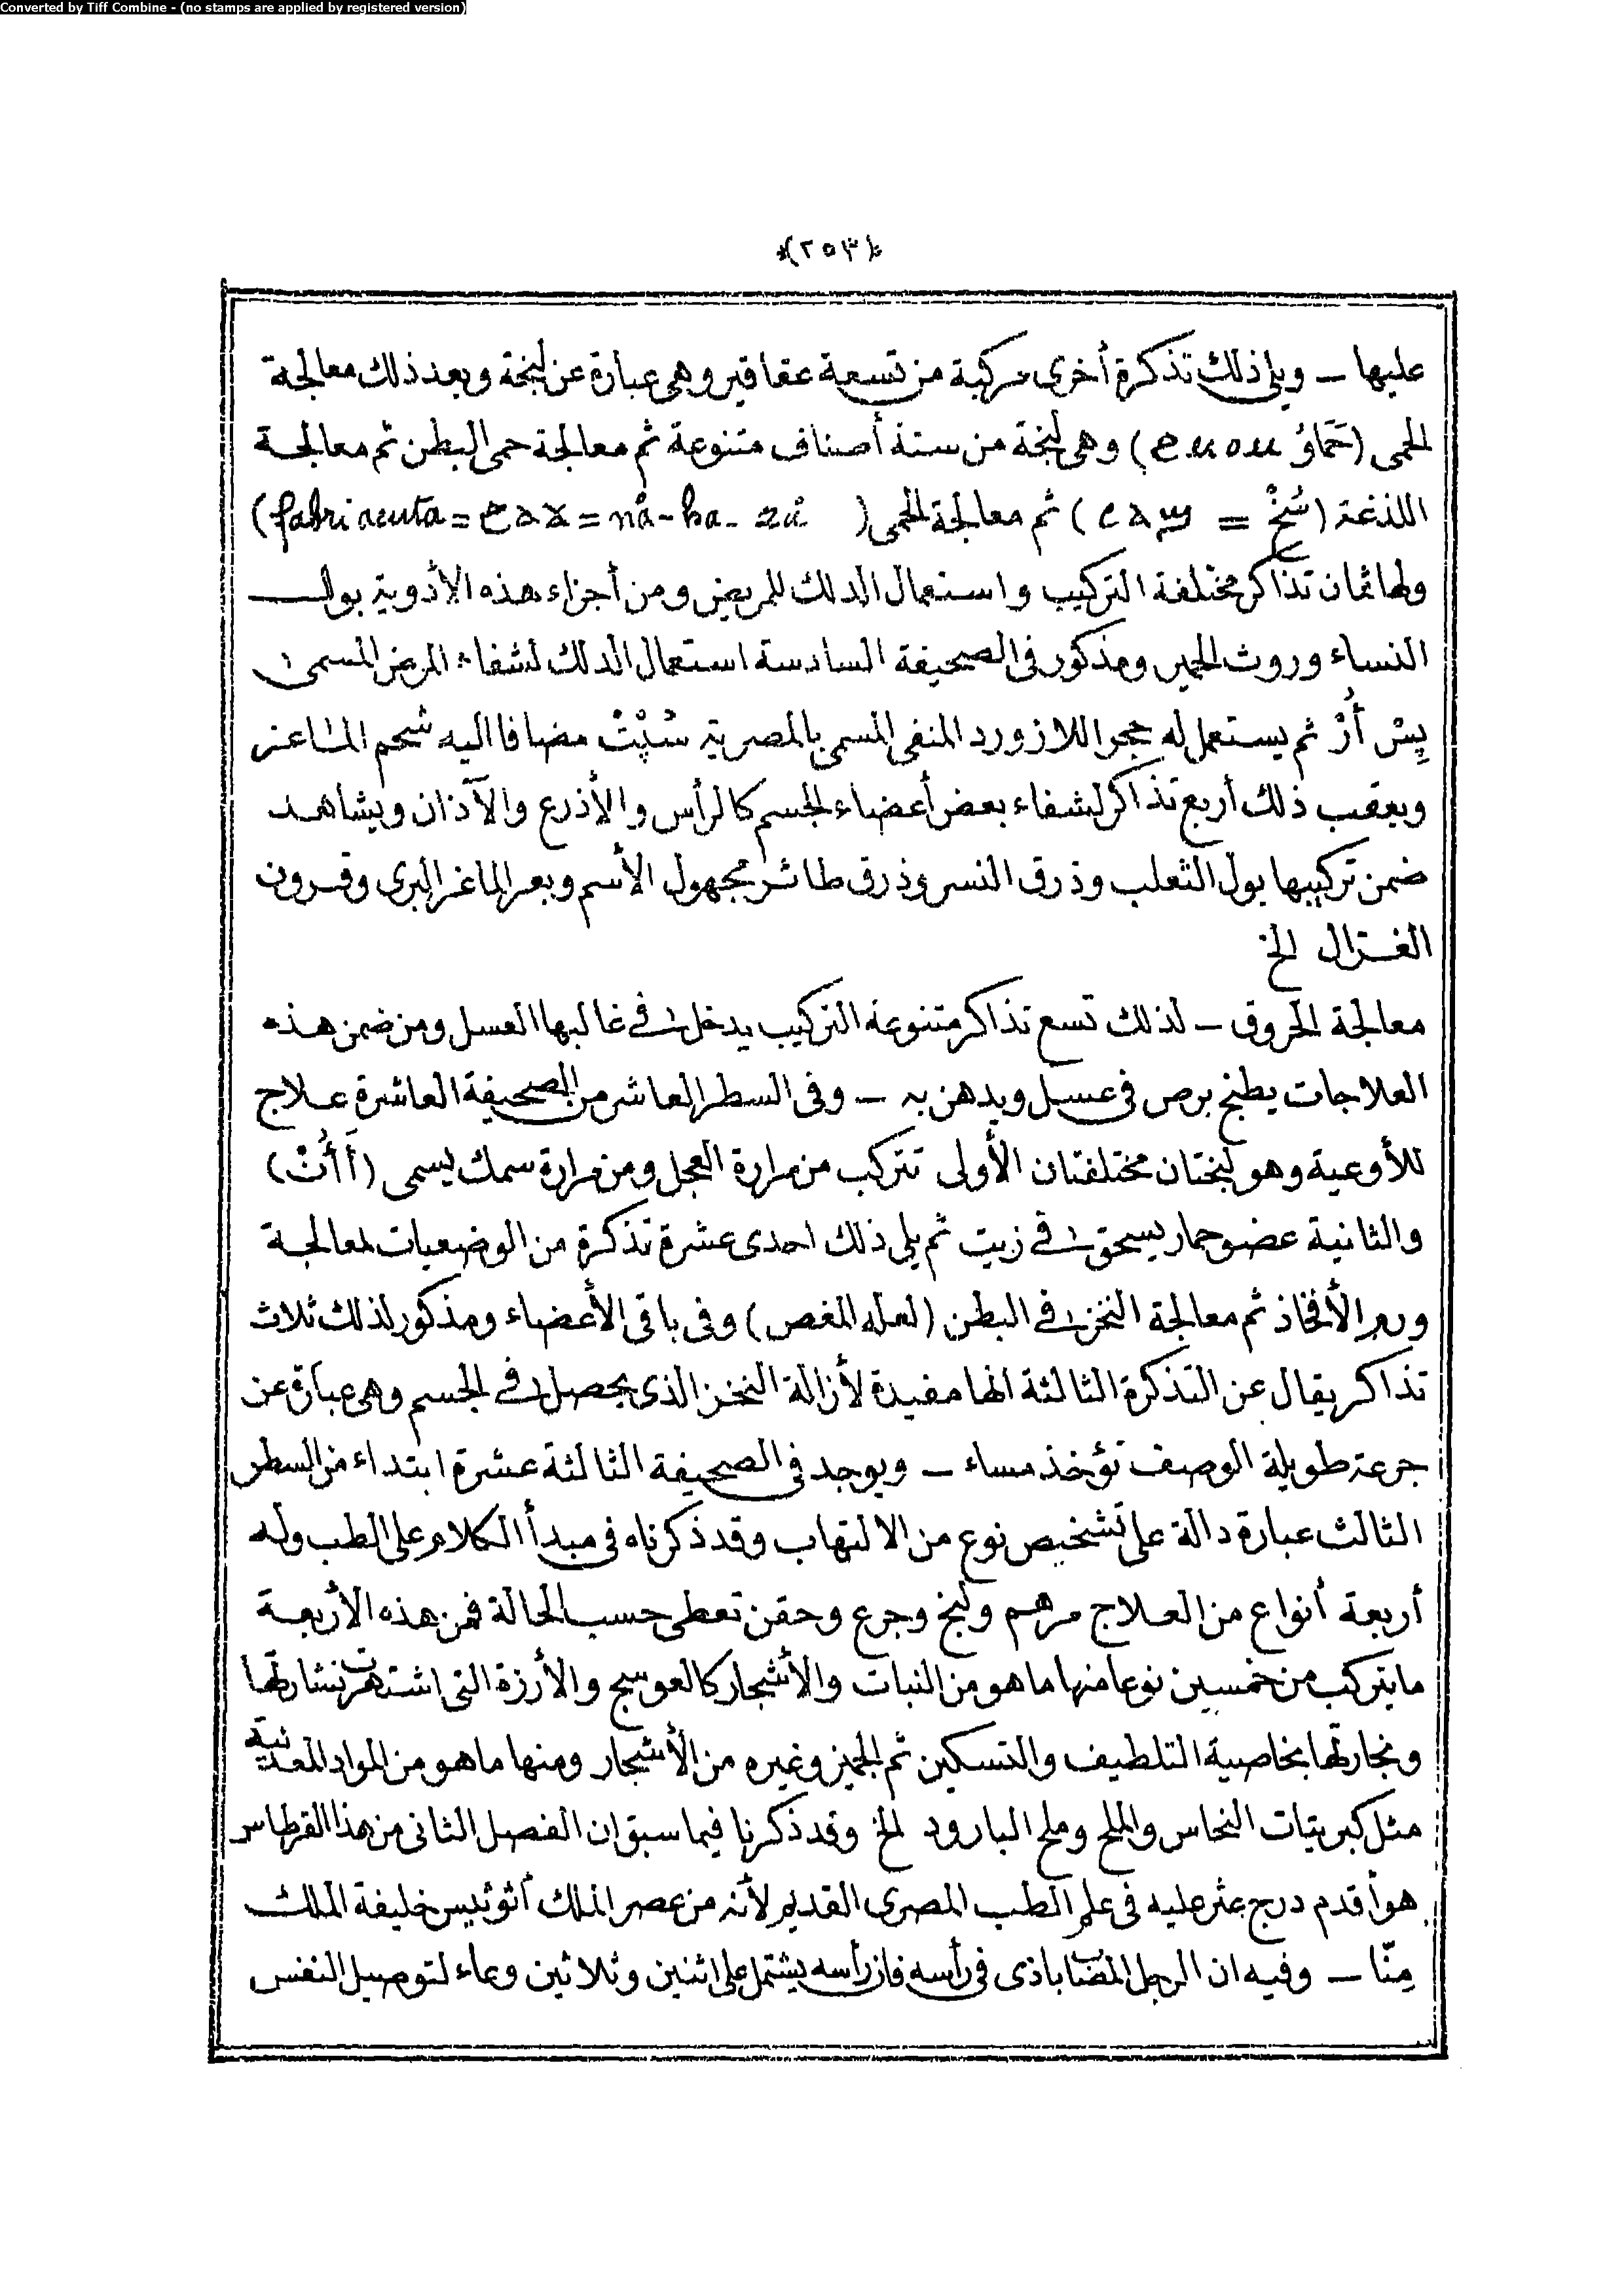 Converted by Tiff Combine - (no stamps are applied by registered version)
*(٢٥٣)*
عليها – ويلى ذلك تذكرة أخرى مركبة من تسعة عقاقير وهى عبارة عن لبخة وبعد ذلك معالجة
الحمى (حَمَاوُ) وهى لبخة من ستة أصناف متنوعة ثم معالجة حمى البطن ثم معالجة
اللذغة (سُخْ =) ثم معالجة الحمى (fabri acuta = = nâ-ha-)
ولها ثمان تذاكر مختلفة التركيب واستعمال الدلك للمريض ومن أجزاء هذه الادوية بول
النساء وروث الحمير ومذكور فى الصحيفة السادسة استعمال الدلك لشفاء المرض المسمى
بِسْ أُرْ ثم يستعمل له حجر اللازورد المنفى المسمى بالمصرية سُبْتْ مضافا اليه شحم الماعز
ويعقب ذلك أربع تذاكر لشفاء بعض أعضاء الجسم كالرأس والأذرع والآذان ويشاهد
ضمن تركيبها بول الثعلب وذرق النسر وذرق طائر مجهول الأسم وبعر الماغر البرى وقرون
الغزال الخ
معالجة الحروق – لذلك تسع تذاكر متنوعة التركيب يدخل فى غالبها العسل ومن ضمن هذه
العلاجات يطبخ برص فى عسل ويدهن به – وفى السطر العاشر من الصحيفة العاشرة علاج
للأوعية وهو لبختان مختلفتان الأولى تتركب من مرارة العجل ومن مرارة سمك يسمى (أَ أُتْ)
والثانية عضو حمار يسحق فى زيت ثم يلى ذلك احدى عشرة تذكرة من الوضعيات لمعالجة
ورم الأفخاذ ثم معالجة النخز فى البطن (لعله المغص) وفى باقى الأعضاء ومذكور لذلك ثلاث
تذاكر يقال عن التذكرة الثالثة انها مفيدة لأزالة النخز الذى يحصل فى الجسم وهى عبارة عن
جرعة طويلة الوصف تؤخذ مساء – ويوجد فى الصحيفة الثالثة عشرة ابتداء من السطر
الثالث عبارة دالة على تشخيص نوع من الالتهاب وقد ذكرناه فى مبدأ الكلام على الطب وله
أربعة أنواع من العلاج مرهم ولبخ وجرع وحقن تعطى حسب الحالة فمن هذه الأربعة
ما يتركب من خمسين نوعا منها ما هو من النبات والأشجار كالعوسج والأرزة التى اشتهرت بنشارتها
ونجارتها بخاصية التلطيف والتسكين ثم الجميز وغيره من الأشجار ومنها ما هو من المواد المعدنية
مثل كبريتات النحاس والملح وملح البارود الخ وقد ذكرنا فيما سبق ان الفصل الثانى من هذا القرطاس
هو أقدم درج عثر عليه فى علم الطب المصرى القديم لأنه من عصر الملك أثوثيس خليفة الملك
مِنّا – وفيه ان الرجل المصاب باذى فى رأسه فان رأسه يشتمل على اثنين وثلاثين وعاء لتوصيل النفس